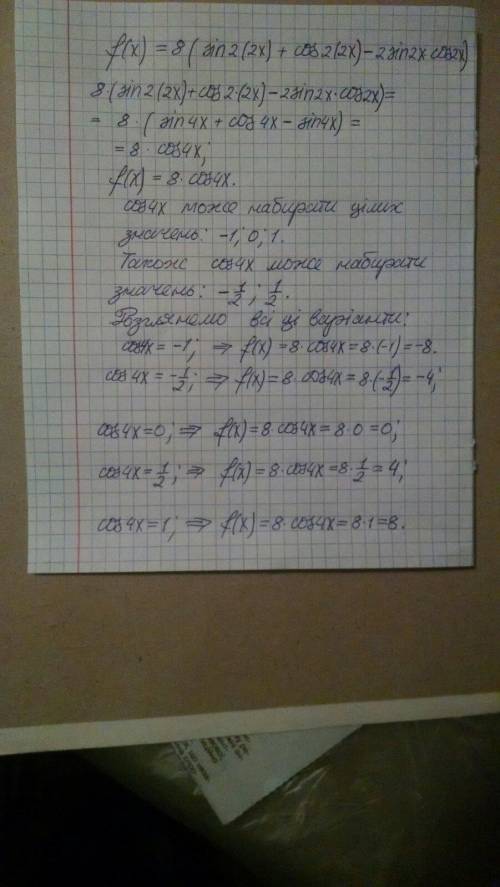 f(x) = 8 ( sin2(2x) + cos2(2x) - 2sin2x·cos2x)
8·(sin2(2x)+cos2·(2x)-2sin2x·cos2x)=
= 8·(sin4x + cos4x - sin4x) =
= 8·cos4x;
f(x) = 8·cos4x.
cos4x може набирати цілих
значень: -1; 0; 1.
Також cos4x може набирати
значень: -1/2; 1/2.
Розглянемо всі ці варіанти:
cos4x = -1; ⇒ f(x) = 8·cos4x = 8·(-1) = -8.
cos4x = -1/2; ⇒ f(x) = 8·cos4x = 8·(-1/2) = -4;
cos4x = 0; ⇒ f(x) = 8·cos4x = 8·0 = 0;
cos4x = 1/2; ⇒ f(x) = 8·cos4x = 8·1/2 = 4;
cos4x = 1; ⇒ f(x) = 8·cos4x = 8·1 = 8.